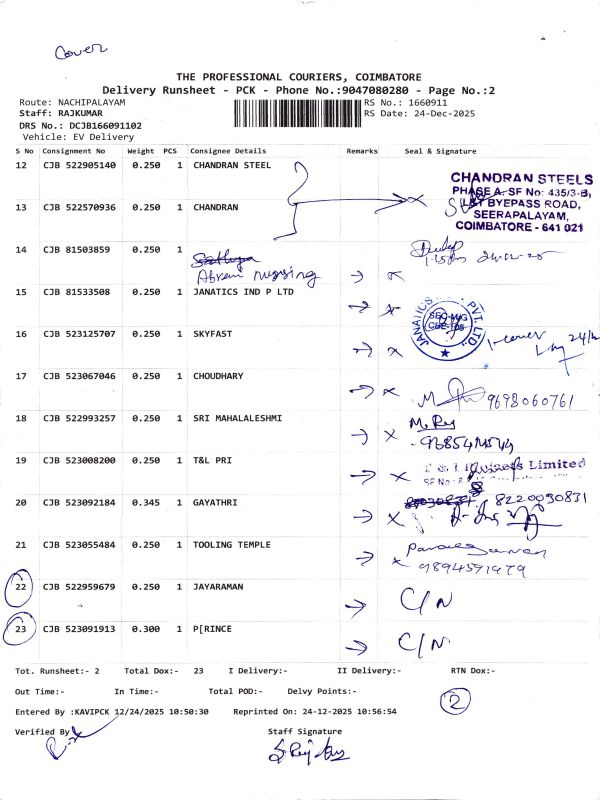 Cover
THE PROFESSIONAL COURIERS, COIMBATORE
Delivery Runsheet - PCK - Phone No.:9047080280 - Page No.:2
Route: NACHIPALAYAM
Staff: RAJKUMAR
DRS No.: DCJB166091102
Vehicle: EV Delivery
RS No.: 1660911
RS Date: 24-Dec-2025
S No Consignment No Weight PCS Consignee Details Remarks Seal & Signature
12 CJB 522905140 0.250 1 CHANDRAN STEEL
CHANDRAN STEELS
PHASE A, SF No: 435/3-B,
L&T BYEPASS ROAD,
SEERAPALAYAM,
COIMBATORE - 641 021
13 CJB 522570936 0.250 1 CHANDRAN
14 CJB 81503859 0.250 1
nursing
15 CJB 81533508 0.250 1 JANATICS IND P LTD
JANATICS PVT. LTD.
16 CJB 523125707 0.250 1 SKYFAST
1-cover
17 CJB 523067046 0.250 1 CHOUDHARY
9698060761
18 CJB 522993257 0.250 1 SRI MAHALALESHMI
19 CJB 523008200 0.250 1 T&L PRI
Limited
SF No
20 CJB 523092184 0.345 1 GAYATHRI
8220030831
21 CJB 523055484 0.250 1 TOOLING TEMPLE
22 CJB 522959679 0.250 1 JAYARAMAN C/N
23 CJB 523091913 0.300 1 P[RINCE C/N
Tot. Runsheet:- 2 Total Dox:- 23 I Delivery:- II Delivery:- RTN Dox:-
Out Time:- In Time:- Total POD:- Delvy Points:-
2
Entered By :KAVIPCK 12/24/2025 10:50:30 Reprinted On: 24-12-2025 10:56:54
Verified By
Staff Signature